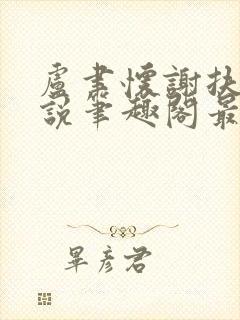 盧肅懷謝扶
說筆趣閣最
畢彥君